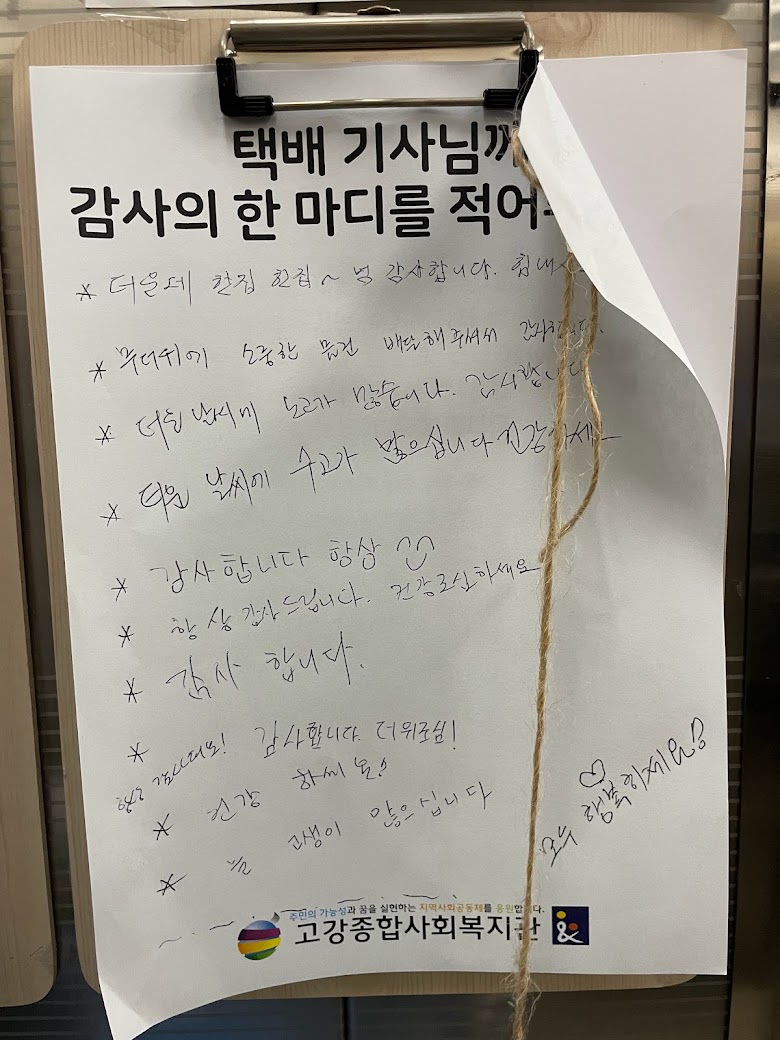 택배 기사님께
감사의 한 마디를 적어
* 더운데 한집 한집~ 넘 감사합니다. 힘내시
* 무더위에 소중한 물건 배달해주셔서 감사합니다.
* 더운 날씨에 노고가 많습니다. 감사합니다
* 더운 날씨에 수고가 많으십니다 건강하세
* 감사합니다 항상
* 항상 감사드립니다. 건강조심하세요
* 감사 합니다.
* 감사합니다. 더위조심!
* 건강 하세요
* 고생이 많으십니다
모두 행복하세요
주민의 가능성과 꿈을 실현하는 지역사회공동체를 응원합니다.
고강종합사회복지관